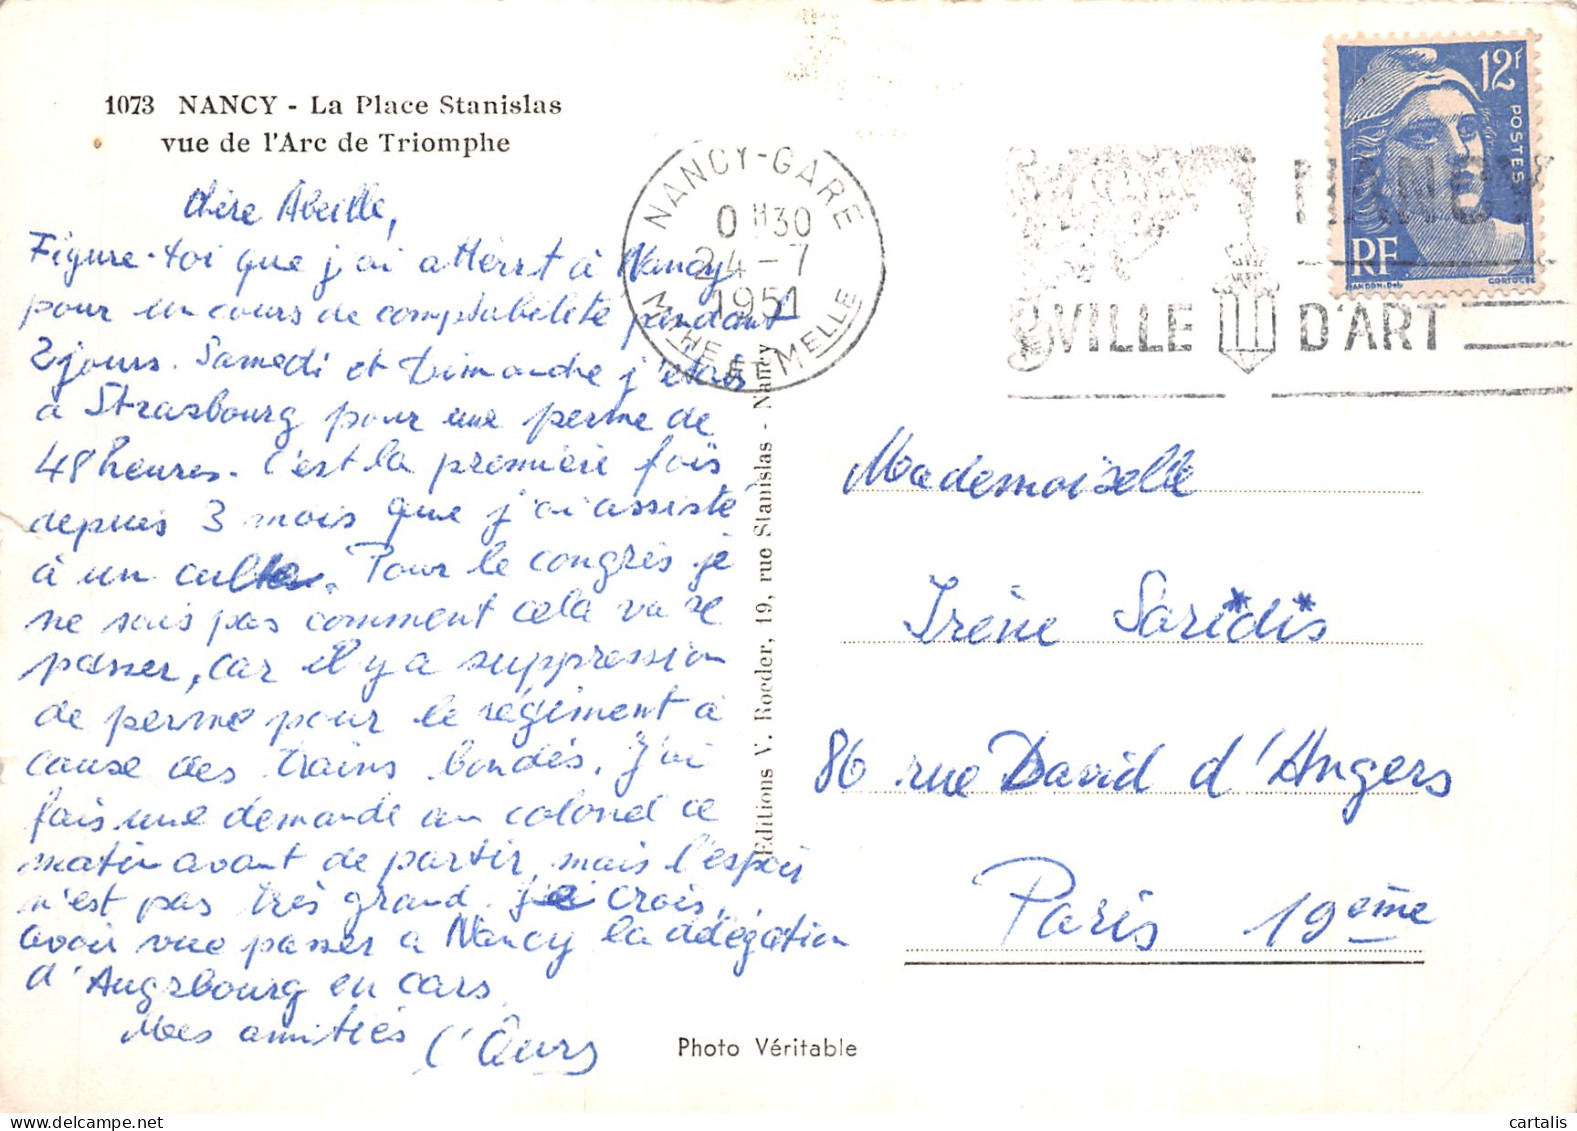 1073 NANCY - La Place Stanislas
vue de l'Arc de Triomphe
chère Abeille,
Figure-toi que j'ai atterrit à Nancy
pour un cours de comptabilité pendant
2 jours. Samedi et Dimanche j'étais
à Strasbourg pour une perme de
48 heures. C'est la première fois
depuis 3 mois que j'ai assisté
à un culte. Pour le congrès je
ne sais pas comment cela va se
passer, car il y a suppression
de perme pour le régiment à
cause des trains bondés. J'ai
fais une demande au colonel ce
matin avant de partir, mais l'espoir
n'est pas très grand. je crois
avoir vue passer à Nancy la délégation
d'Augsbourg en cars.
Mes amitiés
l'Ours
Editions V. Roeder, 19, rue Stanislas - Nancy
Photo Véritable
NANCY-GARE
0 H 30
24 - 7
1951
MTHE ET MELLE
NANCY
VILLE D'ART
12F
POSTES
RF
GANDON-Del
CORTOT SC
Mademoiselle
Irène Saridis
86 rue David d'Angers
Paris 19ème
cartalis